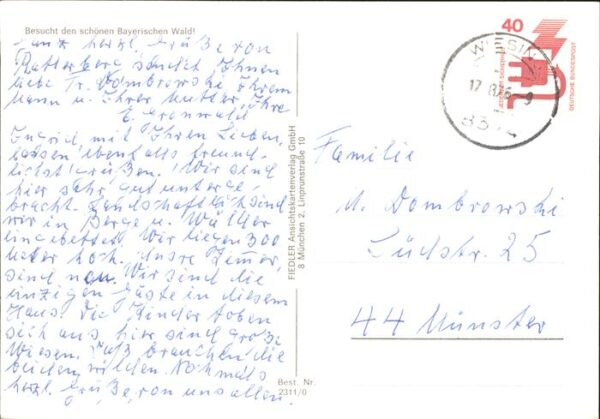 Besucht den schönen Bayerischen Wald!
Ganz herzl. Grüße von
sendet Ihnen
liebe Fr. Dombrowski Ihrem
Mann u. Ihrer Mutter Ihre
E. Gronwald
Ingrid, mit Ihren Lieben,
lassen ebenfalls freund-
lichst grüßen. Wir sind
hier sehr gut unterge-
bracht. Landschaftlich sind
wir in Berge u. Wälder
eingebettet. Wir liegen 300
Meter hoch. Unsre Zimmer,
sind neu. Wir sind die
einzigen Gäste in diesem
Haus. Die Kinder toben
sich aus hier sind große
Wiesen. Daß brauchen die
beiden, wilden. Nochmals
herzl. Grüße, von uns allen.
FIEDLER Ansichtskartenverlag GmbH
8 München 2, Linprunstraße 10
Best. Nr.
2311/0
40
DEUTSCHE BUNDESPOST
17.8.76-9
Familie
M. Dombrowski
Südstr. 25
44 Münster